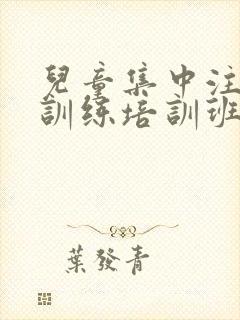 兒童集中注
訓练培訓班
葉發青